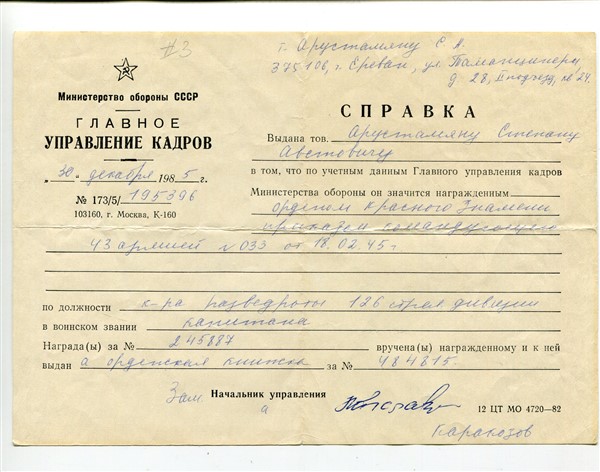 #3
г. Арустамяну С. А.
375106, г. Ереван, ул. Таманцинери,
д 28, II подъезд, кв 24.
Министерство обороны СССР
ГЛАВНОЕ
УПРАВЛЕНИЕ КАДРОВ
„30" декабря 1985 г.
№ 173/5/195396
103160, г. Москва, К-160
СПРАВКА
Выдана тов. Арустамяну Степану
Австовичу
в том, что по учетным данным Главного управления кадров
Министерства обороны он значится награжденным
орденом Красного Знамени
приказом командующего
43 армией N 033 от 18.02.45 г.
по должности к-ра разведроты 126 стрел дивизии
в воинском звании капитана
Награда(ы) за № 245887 вручена(ы) награжденному и к ней
выдан а орденская книжка за № 484815.
Зам. Начальник управления
а
12 ЦТ МО 4720—82
Каракозов